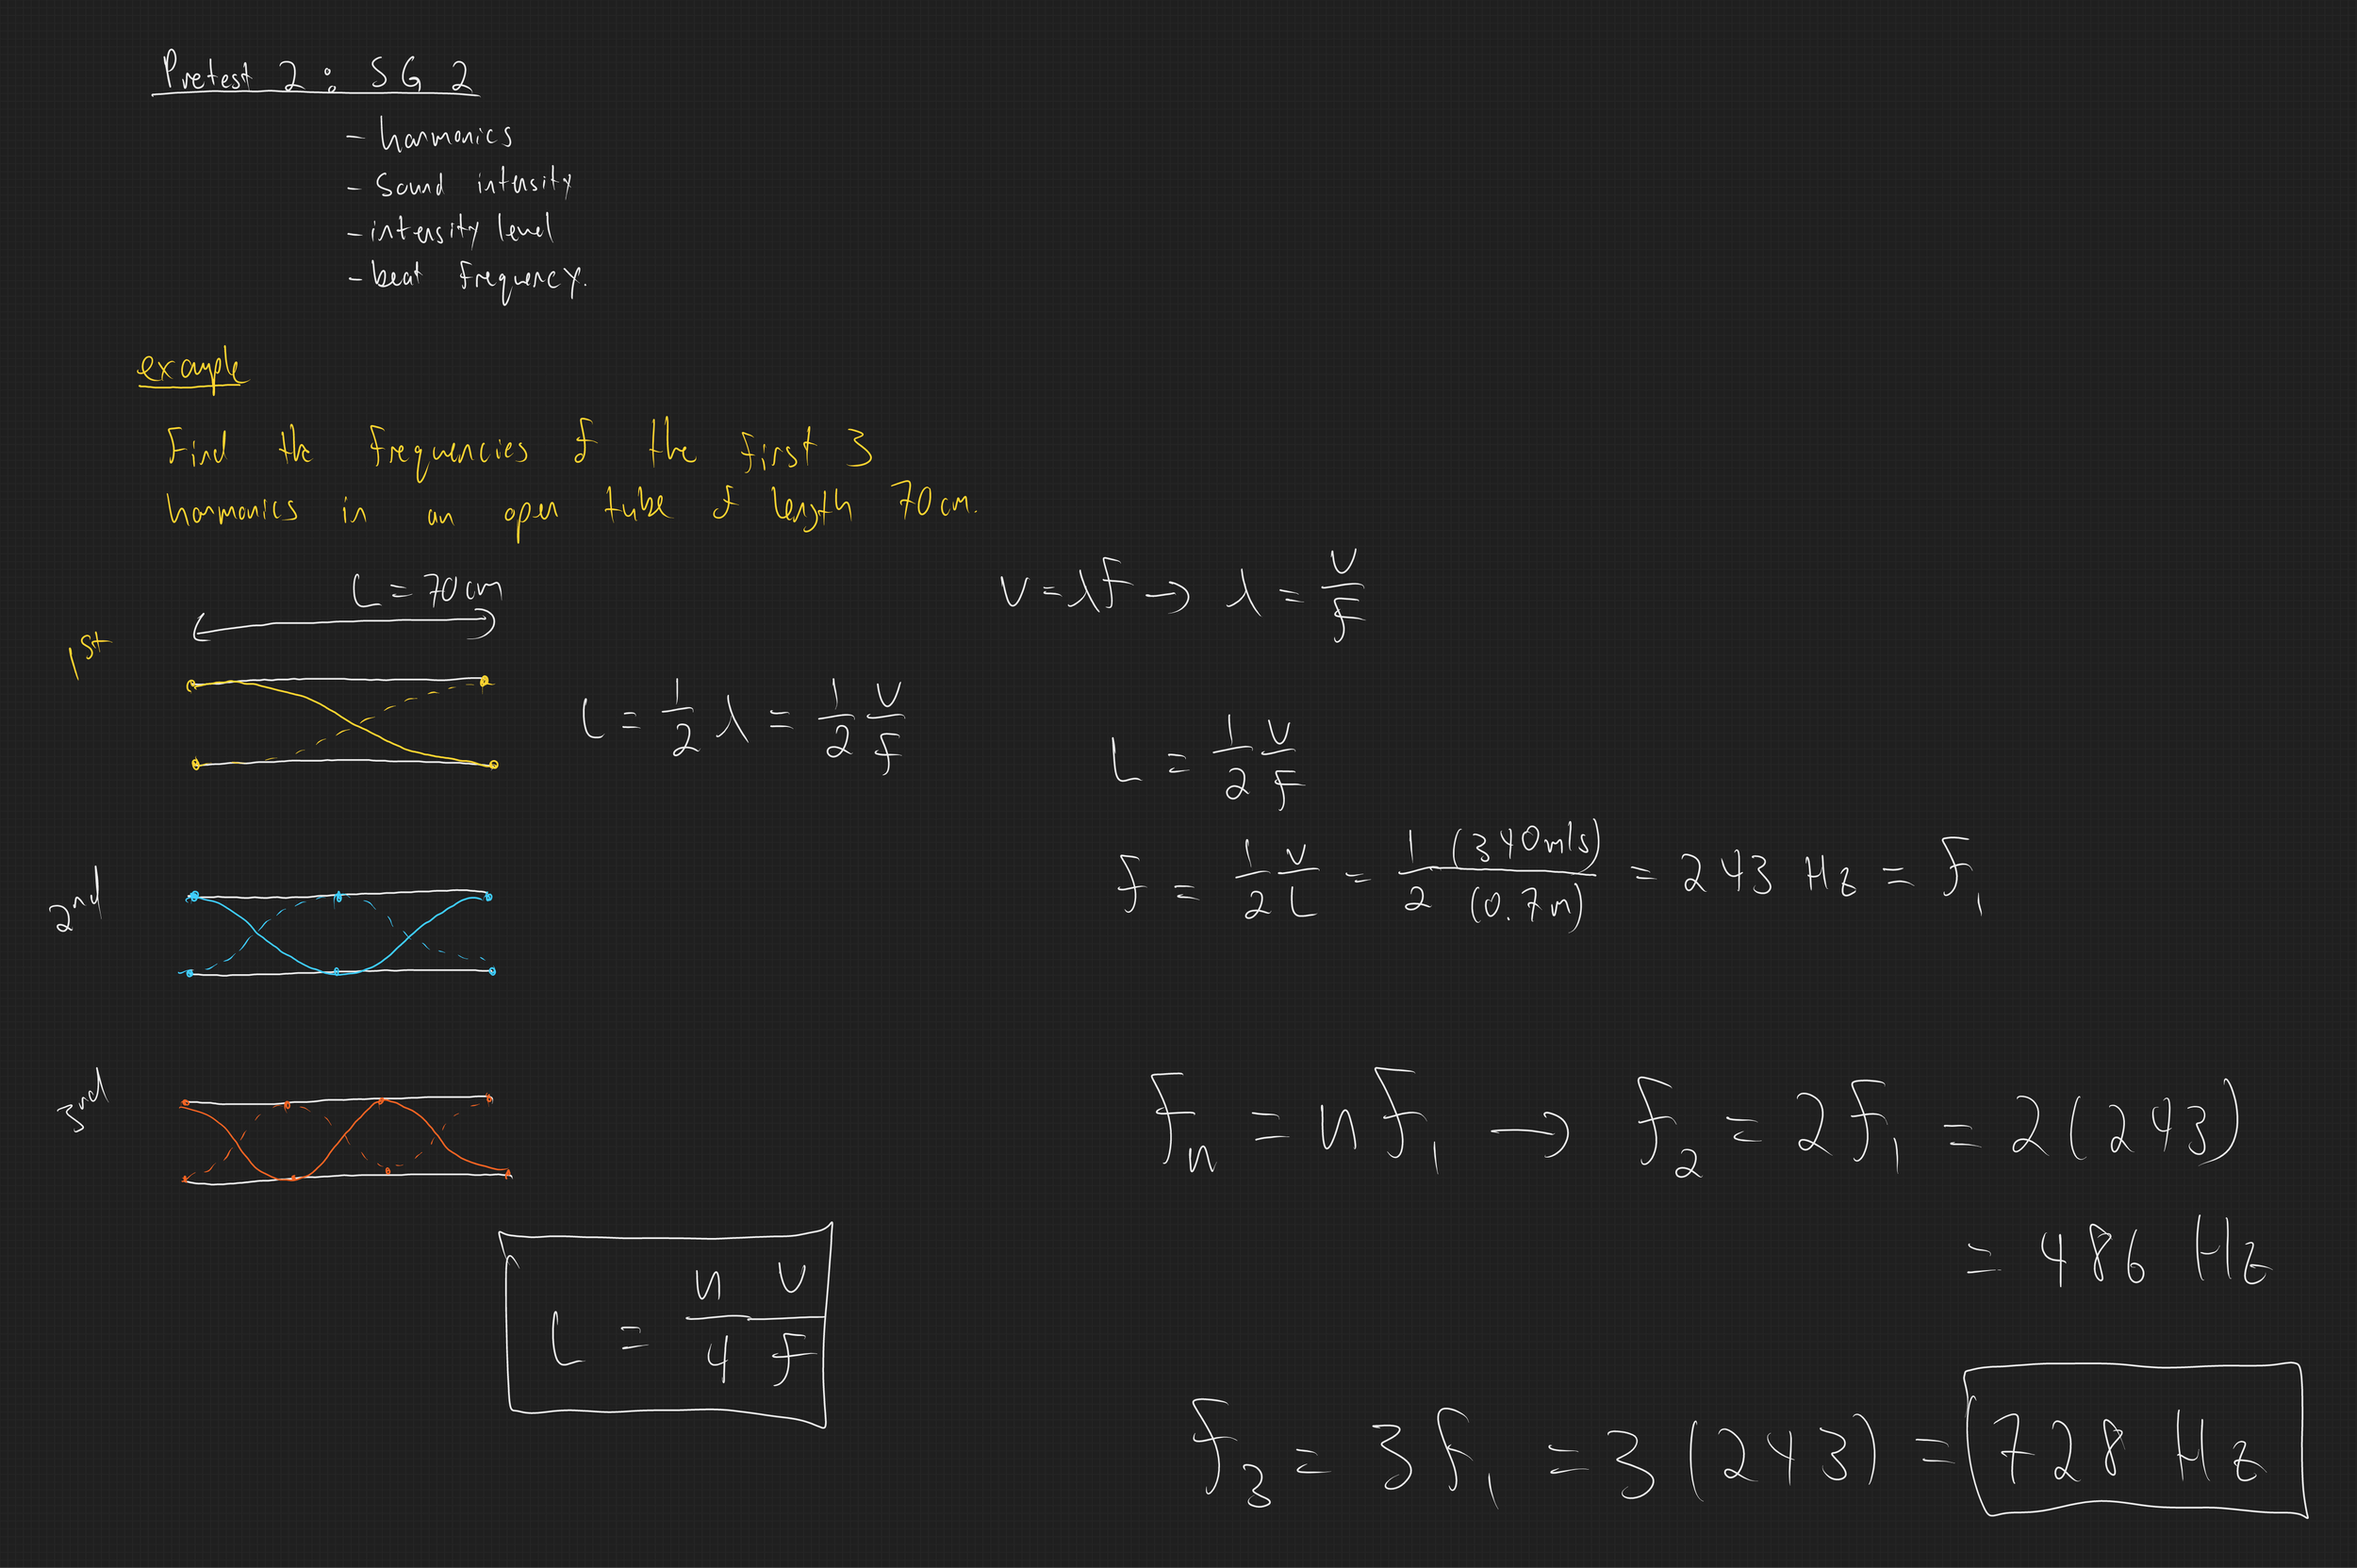 Pretest 2: SG 2
- harmonics
- Sound intensity
- intensity level
- beat frequency.
example
Find the frequencies of the first 3
harmonics in an open tube of length 70 cm.
L = 70 cm
v = λf → λ = v/f
1st
L = 1/2 λ = 1/2 v/f
L = 1/2 v/f
f = 1/2 v/L = 1/2 (340 m/s)/(0.7 m) = 243 Hz = f₁
2nd
3nd
fₙ = n f₁ → f₂ = 2f₁ = 2(243)
= 486 Hz
L = n/4 v/f
f₃ = 3f₁ = 3(243) = 728 Hz